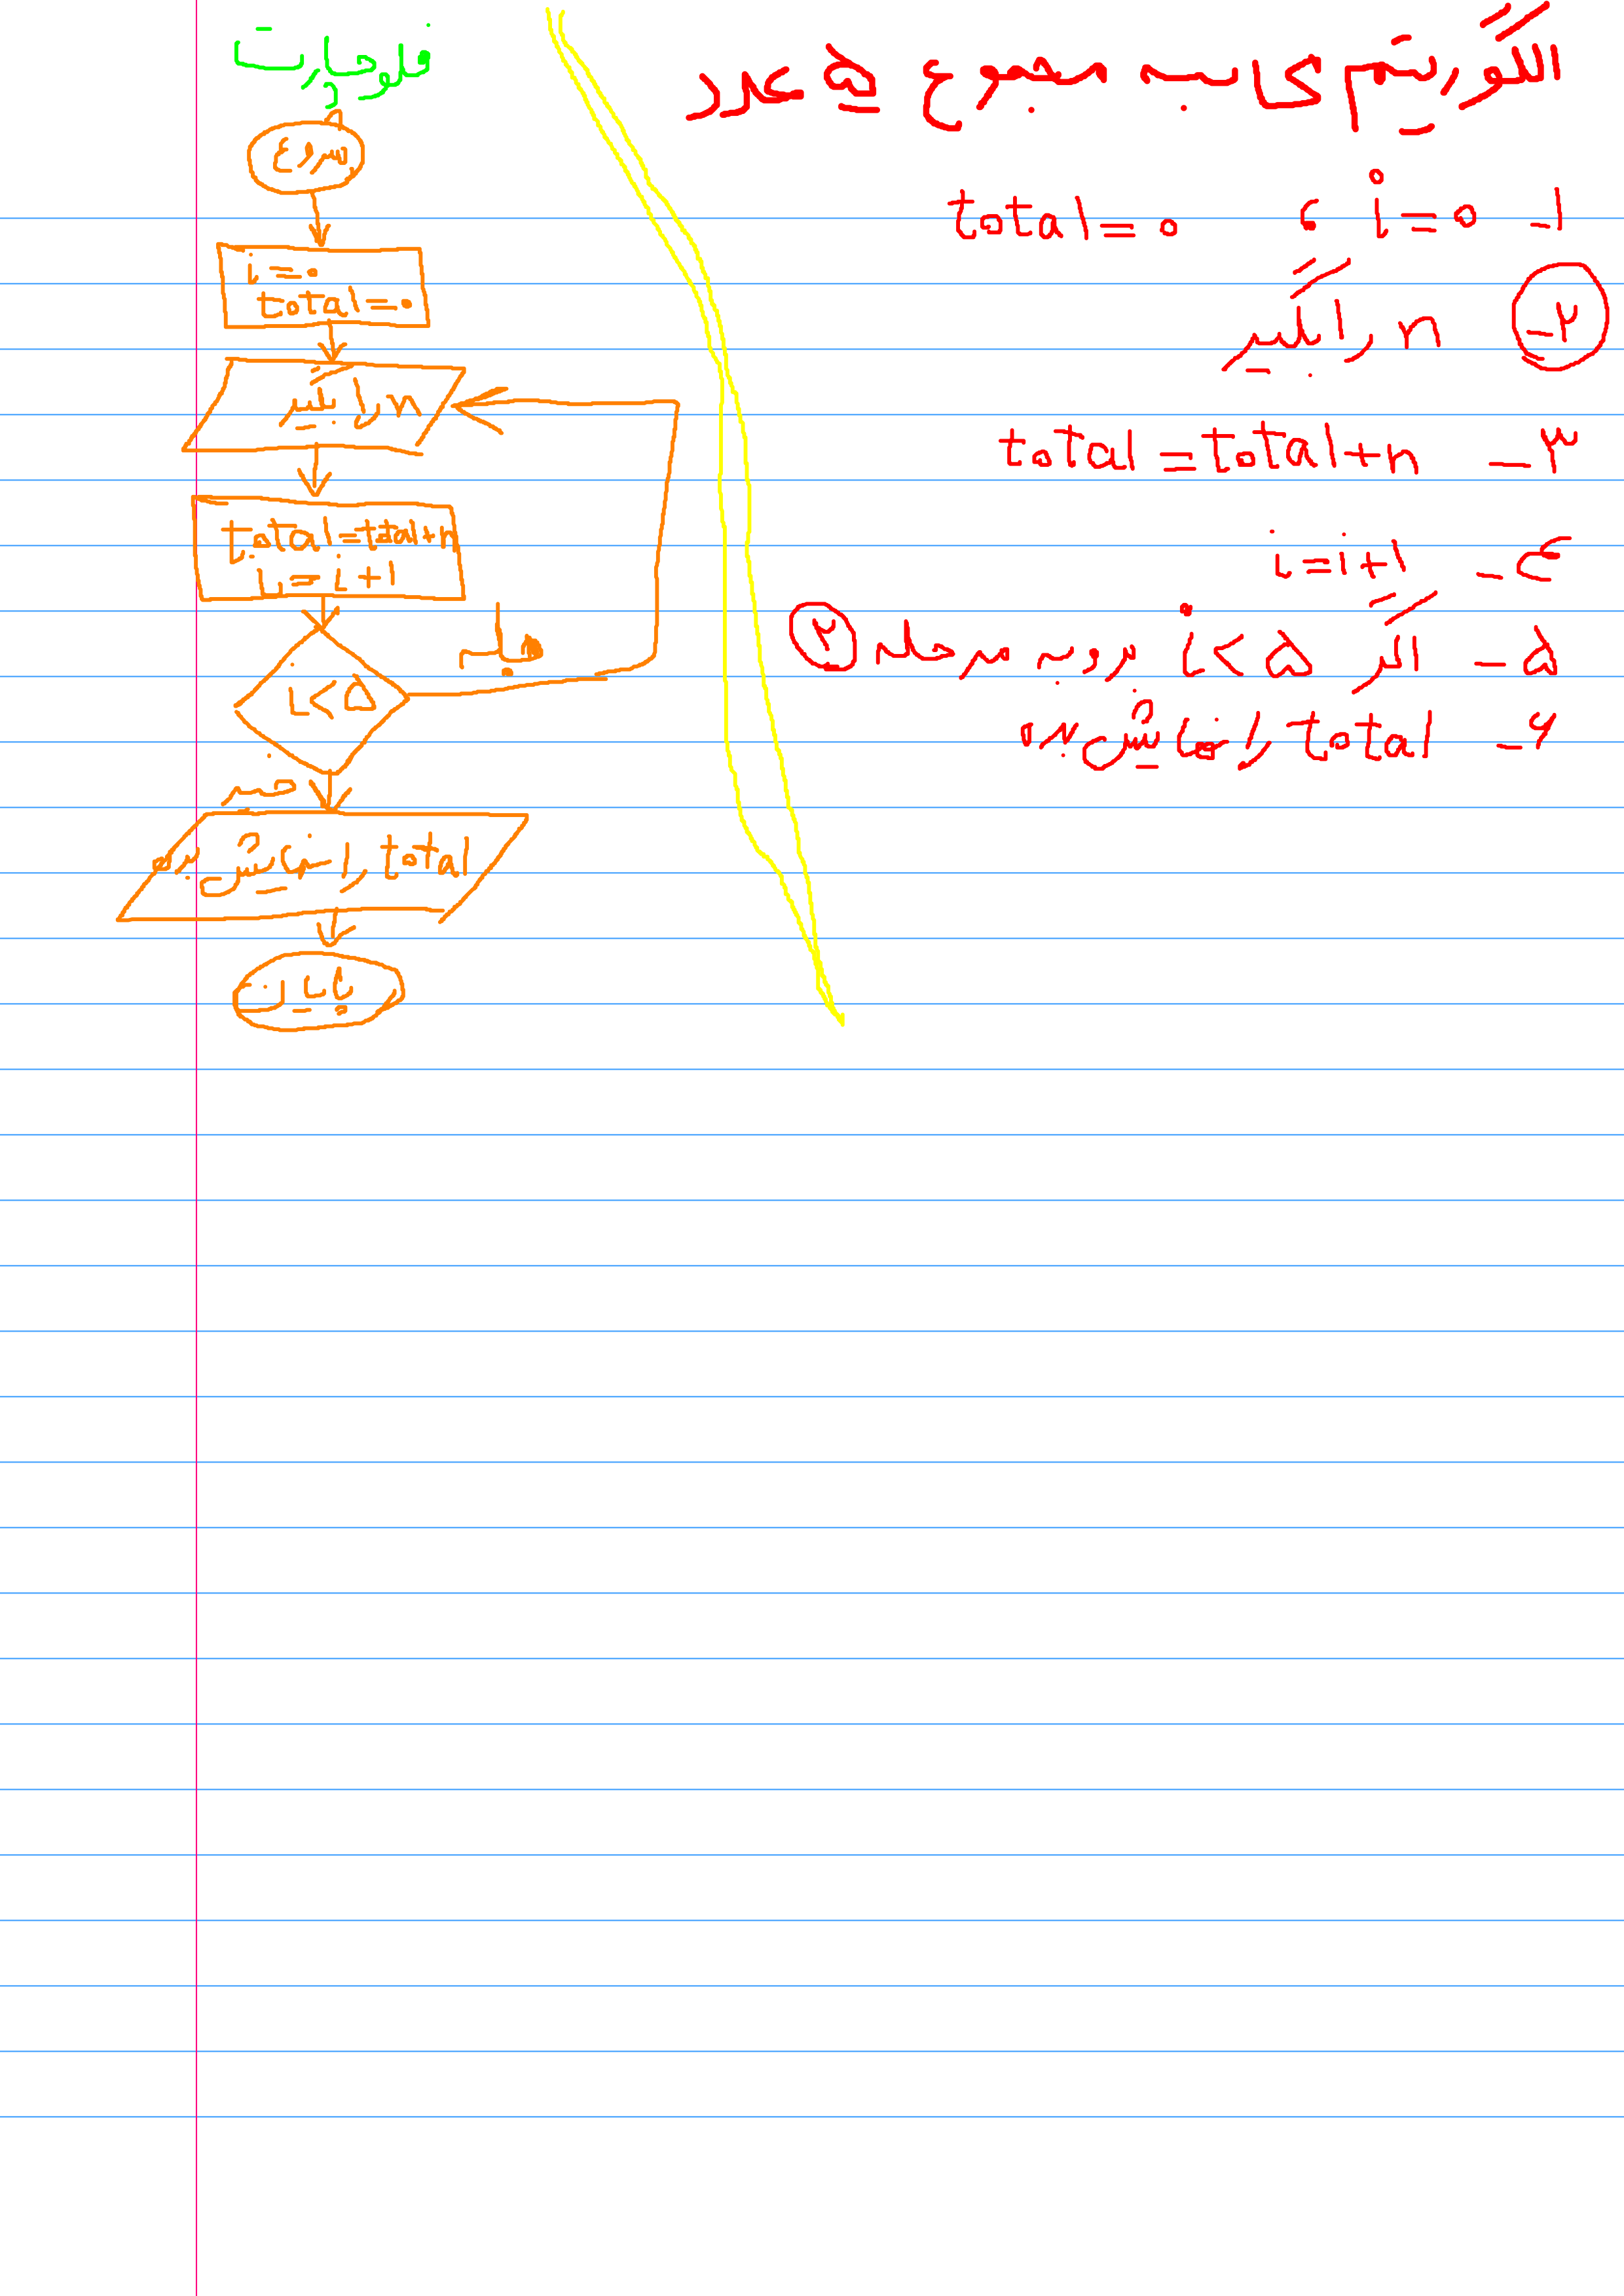 الگوریتم محاسبه مجموع ۵ عدد
۱- i=۰ ، total=۰
۲- n را بگیر
۳- total=total+n
۴- i=i+۱
۵- اگر i<۵ برو به مرحله ۲
۶- total را نمایش بده
فلوچارت
شروع
i=۰
total=۰
n را بگیر
total=total+n
i=i+۱
i<۵
بله
خیر
total را نمایش بده
پایان